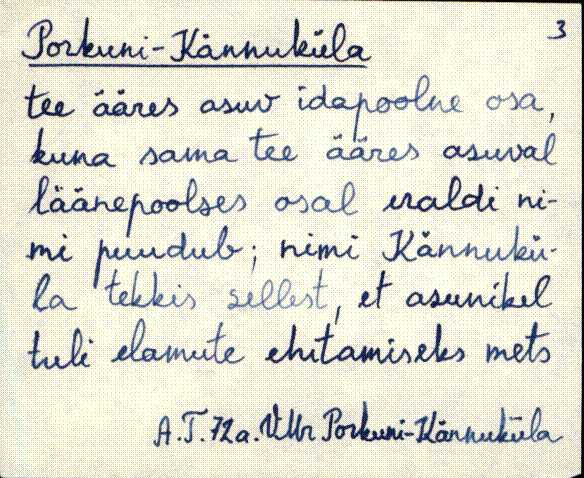 3
Porkuni-Kännuküla
tee ääres asuv idapoolne osa,
kuna sama tee ääres asuval
läänepoolses osal eraldi ni-
mi puudub; nimi Kännukü-
la tekkis sellest, et asunikel
tuli elamute ehitamiseks mets
A.T. 72a. VMr Porkuni-Kännuküla